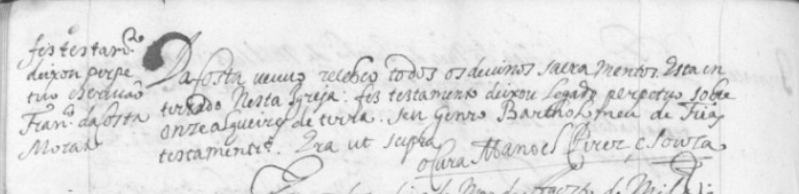 fes testam.to
deixou perpe
tuo
Fran.co da Costa
Moraa
Da Costa veuvo recebeo todos os devinos sacramentos. Esta en
terrado Nesta Igreja: fes testamento deixou Legado perpetuo sobre
onze de terra. seu genro Bartholomeu de Frias
testament.ro Era ut supra
o Cura Manoel Pirez e Souza